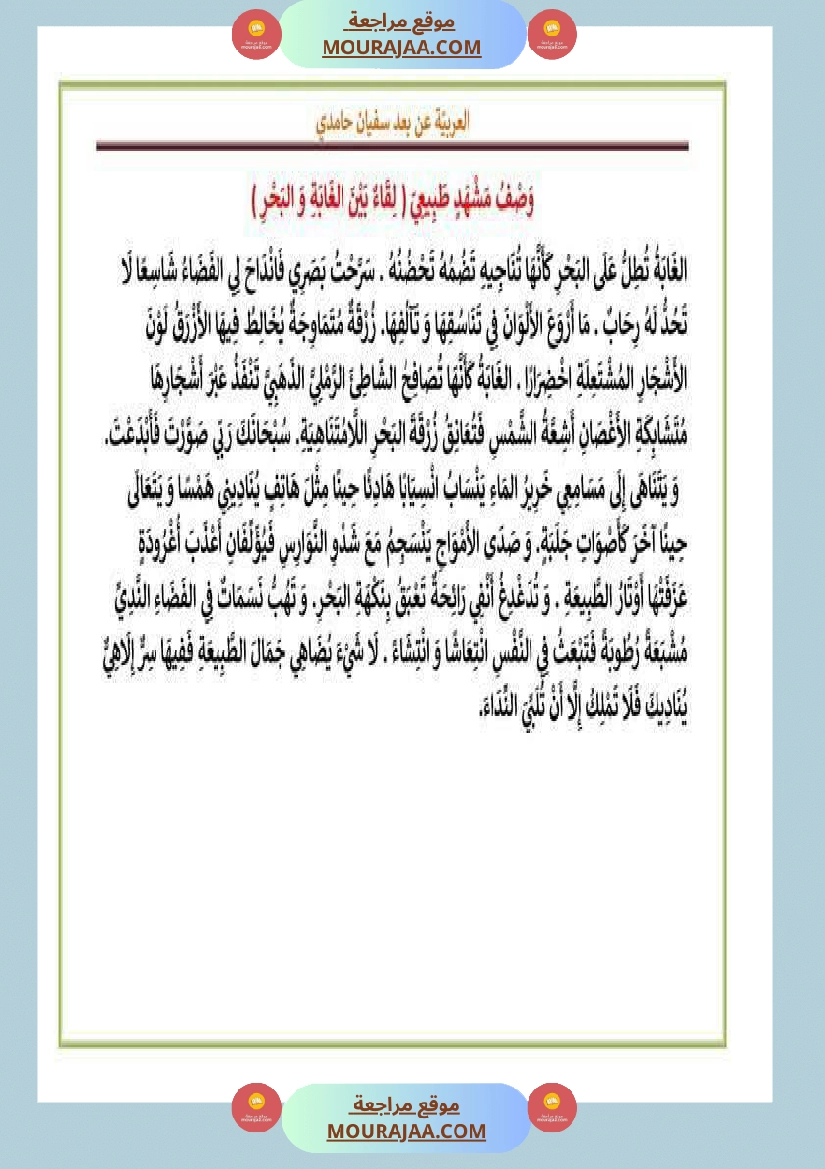 موقع مراجعة
MOURAJAA.COM
العربيّة عن بعد سفيان حامدي
وَصْفُ مَشْهَدٍ طَبِيعِيّ ( لِقَاءٌ بَيْنَ الغَابَةِ وَ البَحْرِ )
الغَابَةُ تُطِلُّ عَلَى البَحْرِ كَأَنَّهَا تُنَاجِيهِ تَضُمُّهُ تَحْضُنُهُ . سَرَّحْتُ بَصَرِي فَانْدَاحَ لِي الفَضَاءُ شَاسِعًا لَا
تَحُدُّ لَهُ رِحَابٌ . مَا أَرْوَعَ الأَلْوَانَ فِي تَنَاسُقِهَا وَ تَآلُفِهَا. زُرْقَةٌ مُتَمَاوِجَةٌ يُخَالِطُ فِيهَا الأَزْرَقُ لَوْنَ
الأَشْجَارِ المُشْتَعِلَةِ اخْضِرَارًا . الغَابَةُ كَأَنَّهَا تُصَافِحُ الشَّاطِئَ الرَّمْلِيَّ الذَّهَبِيَّ تَنْفَذُ عَبْرَ أَشْجَارِهَا
مُتَشَابِكَةِ الأَغْصَانِ أَشِعَّةُ الشَّمْسِ فَتُعَانِقُ زُرْقَةَ البَحْرِ اللَّامُتَنَاهِيَةِ. سُبْحَانَكَ رَبِّي صَوَّرْتَ فَأَبْدَعْتَ.
وَ يَتَنَاهَى إِلَى مَسَامِعِي خَرِيرُ المَاءِ يَنْسَابُ انْسِيَابًا هَادِئًا حِينًا مِثْلَ هَاتِفٍ يُنَادِينِي هَمْسًا وَ يَتَعَالَى
حِينًا آخَرَ كَأَصْوَاتِ جَلَبَةٍ. وَ صَدَى الأَمْوَاجِ يَنْسَجِمُ مَعَ شَدْوِ النَّوَارِسِ فَيُؤَلِّفَانِ أَعْذَبَ أُغْرُودَةٍ
عَزَفَتْهَا أَوْتَارُ الطَّبِيعَةِ . وَ تُدَغْدِغُ أَنْفِي رَائِحَةٌ تَعْبَقُ بِنَكْهَةِ البَحْرِ. وَ تَهُبُّ نَسَمَاتٌ فِي الفَضَاءِ النَّدِيِّ
مُشْبَعَةً رُطُوبَةً فَتَبْعَثُ فِي النَّفْسِ انْتِعَاشًا وَ انْتِشَاءً . لَا شَيْءَ يُضَاهِي جَمَالَ الطَّبِيعَةِ فَفِيهَا سِرٌّ إِلَاهِيٌّ
يُنَادِيكَ فَلَا تَمْلِكُ إِلَّا أَنْ تُلَبِّيَ النِّدَاءَ.
موقع مراجعة
MOURAJAA.COM